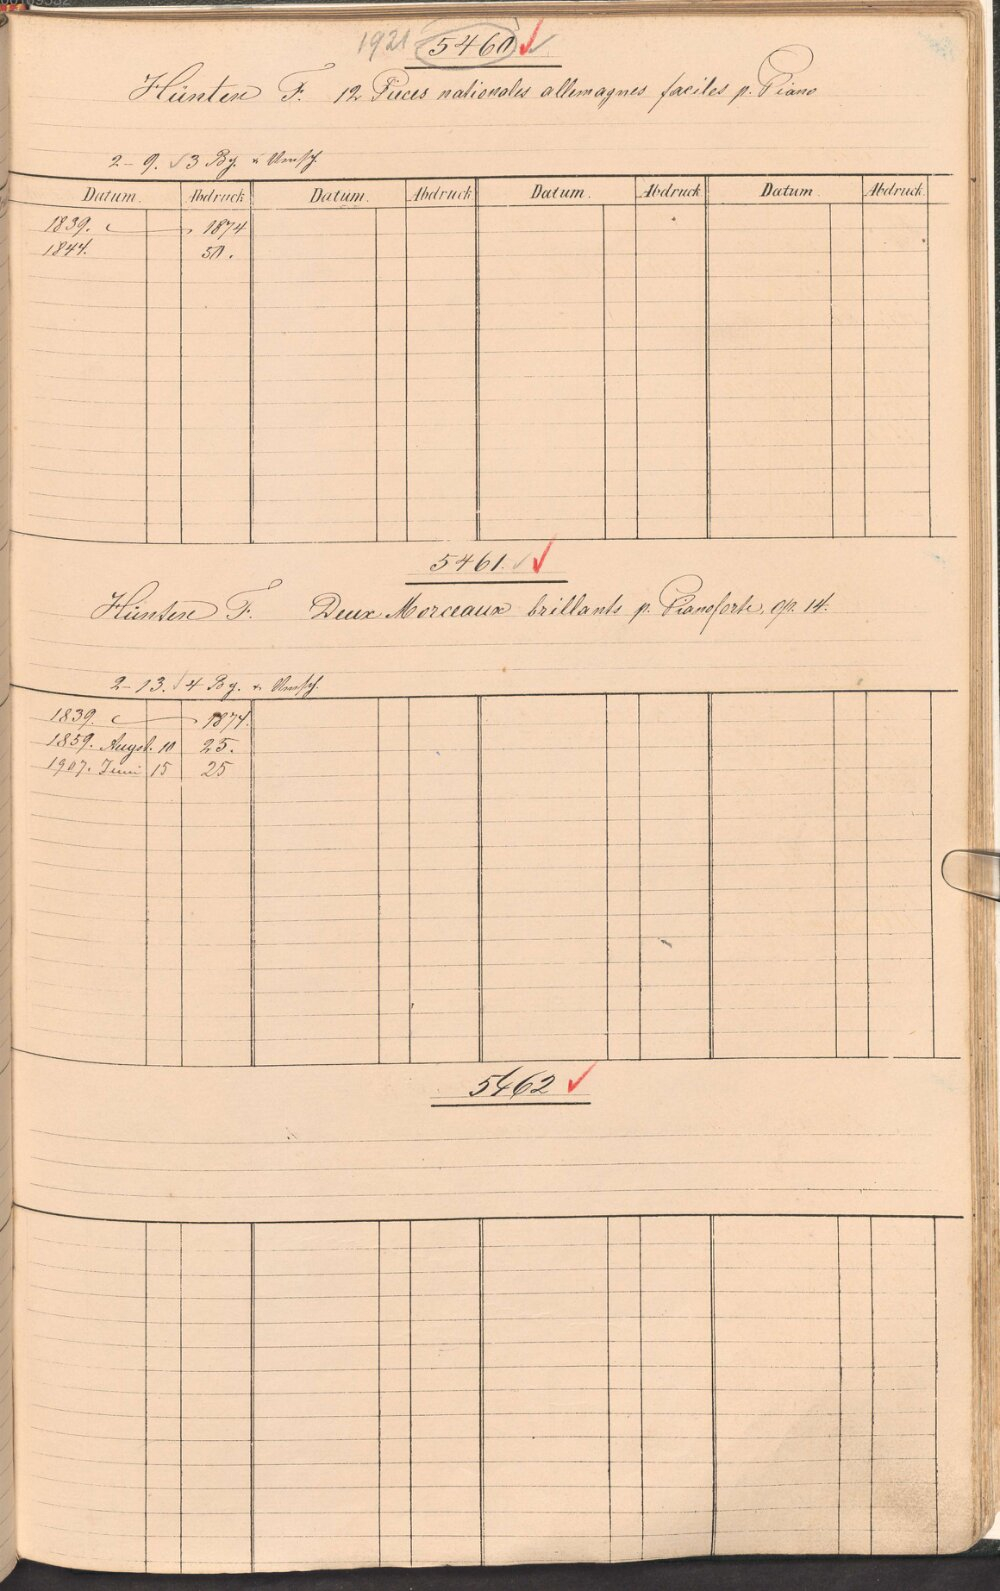 1921 5460
Hünten F. 12 Pieces nationales allemagnes faciles p. Piano
2-9. 3 Bg. & Umsch.
Datum. Abdruck Datum. Abdruck Datum. Abdruck Datum. Abdruck
1839. 1874
1844. 50.
5461.
Hünten F. Deux Morceaux brillants p. Pianoforte, op. 14.
2-13. 4 Bg. & Umsch.
1839. 1874.
1859. Augst. 10 25.
1907. Juni 15 25
5462